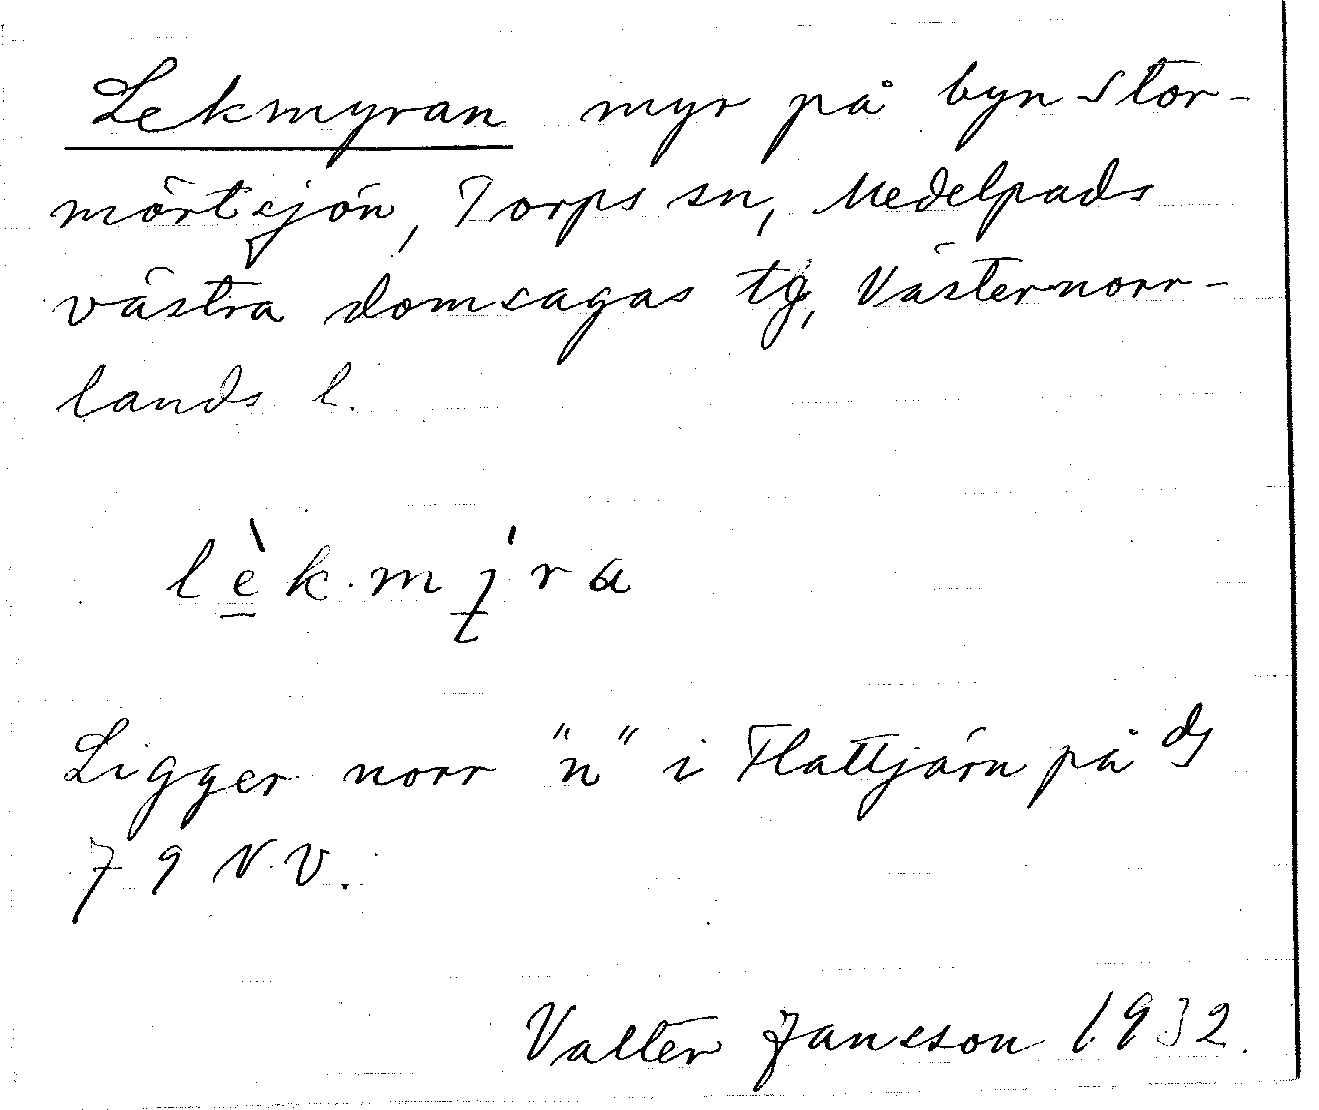 Lekmyran myr på byn Stor-
mörtsjön, Torps sn, Medelpads
västra domsagas tg, Västernorr-
lands l.
Ligger norr "n" i Flattjärn på
79 N.V.
Valter Jansson 1932.